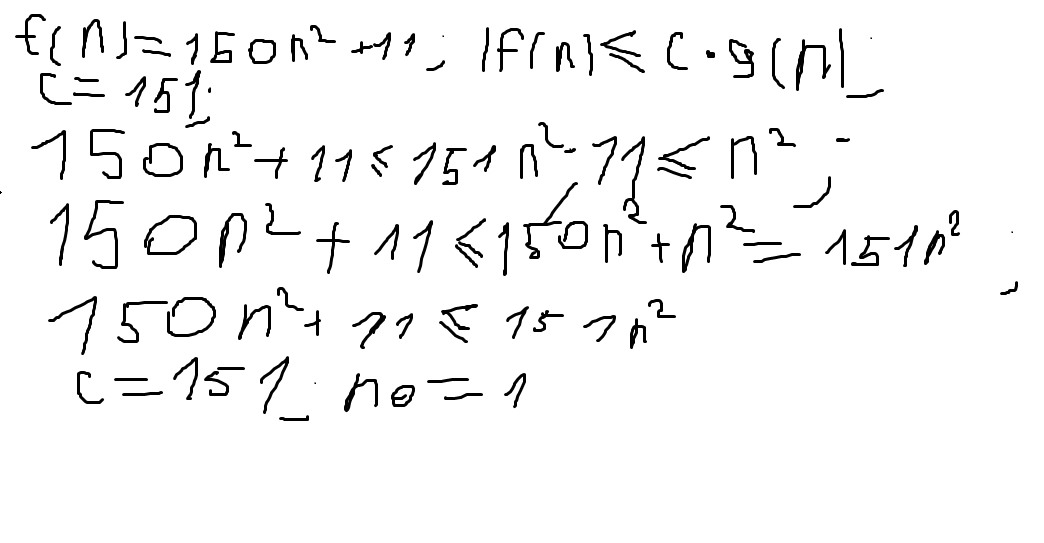 f(n)=150n²+11; |f(n)≤ c·g(n|
c=151;
150n²+11≤151n²; 11≤n²;
150n²+11≤150n²+n²=151n²;
150n²+11≤151n²
c=151; n₀=1